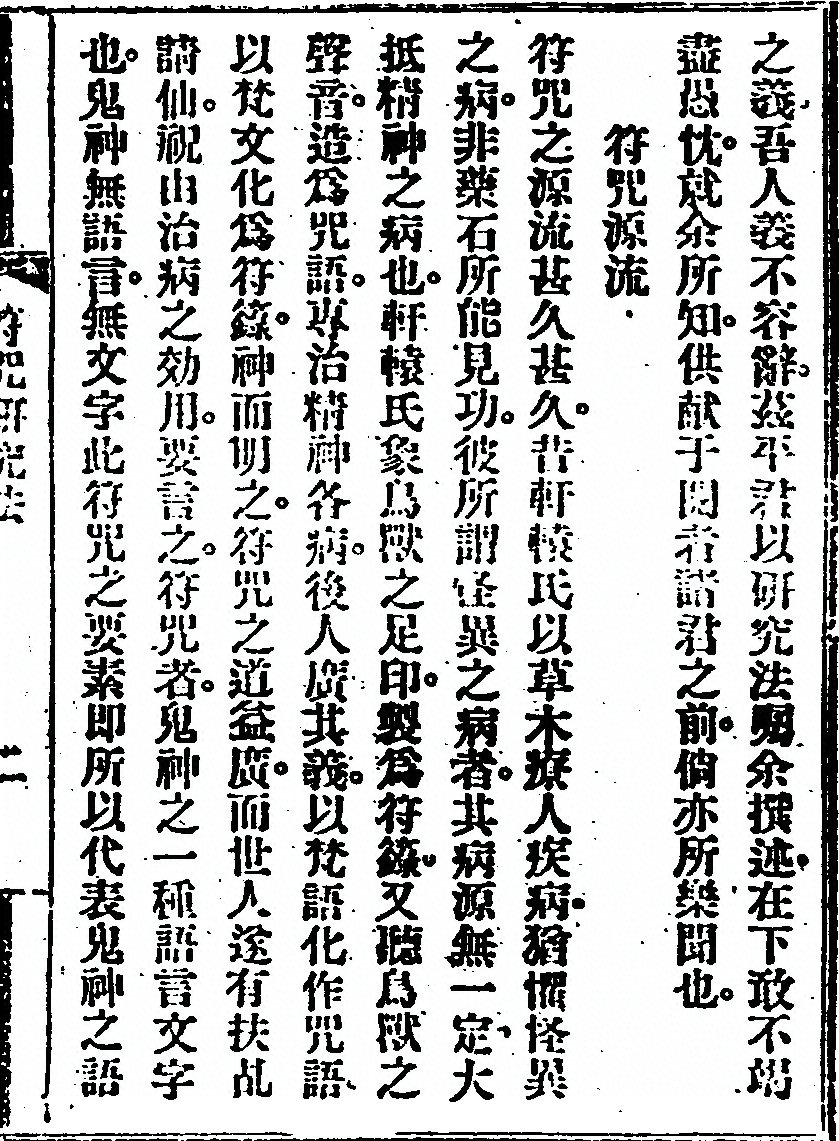 之義吾人義不容辭茲平君以研究法囑余撰述在下敢不竭
盡愚忱就余所知供献于閱者諸君之前倘亦所樂聞也
符咒源流
符咒之源流甚久甚久昔軒轅氏以草木療人疾病猶懼怪異
之病非藥石所能見功彼所謂怪異之病者其病源無一定大
抵精神之病也軒轅氏象鳥獸之足印製爲符籙又聽鳥獸之
聲音造爲咒語專治精神各病後人廣其義以梵語化作咒語
以梵文化爲符籙神而明之符咒之道益廣而世人遂有扶乩
請仙祝由治病之効用要言之符咒者鬼神之一種語言文字
也鬼神無語言無文字此符咒之要素即所以代表鬼神之語
符咒研究法
二